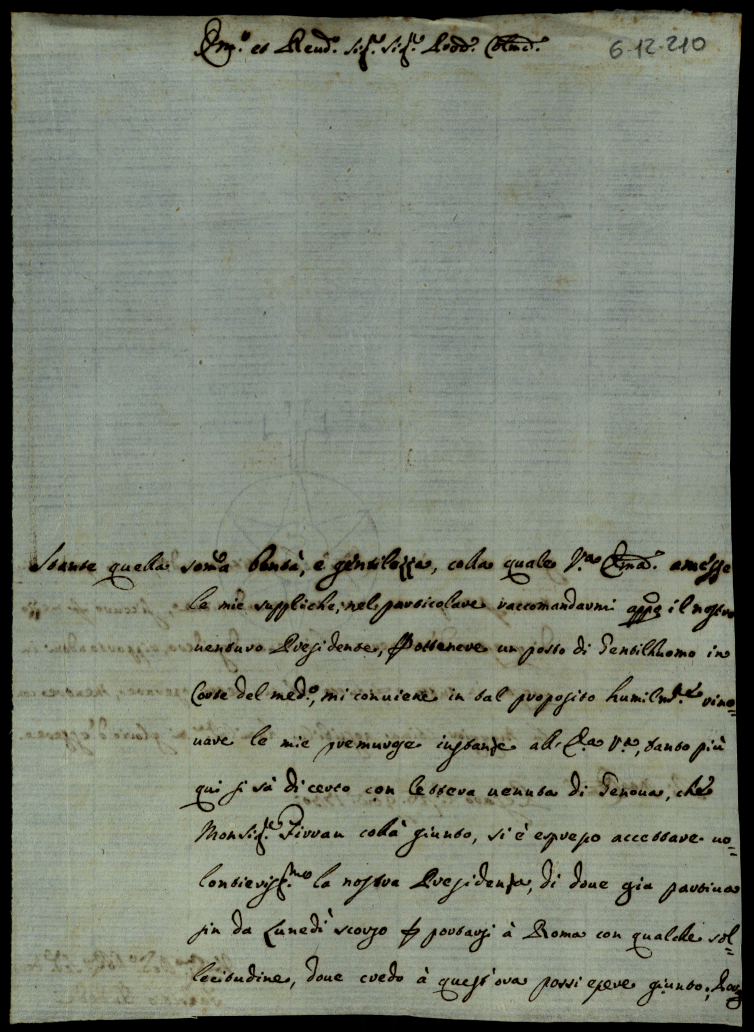 Em.º et Reud.º Sig.r Sig.r Prõn. Colmo.
6-12-210
Stante quella som̃a bontà, e gentilezza, colla quale V.a Em̃a. amesse
le mie suppliche, nel particolare raccomandarmi appõ il nostro
venturo Presidente, p ottenere un posto di Gentilhuomo in
Corte del med.º, mi conuiene in tal proposito humilm.te rino=
uare le mie premurose instanze all' E.a V.a, tanto più
qui si sà di certo con lettera uenuta di Genoua, che
Monsig.r Firrau colà giunto, si è espresso accettare uo=
lontieriss.mo la nostra Presidenza, di doue già partiua
sin da Lunedì scorso p portarsi à Roma con qualche sol=
lecitudine, doue credo à quest'ora possi essere giunto;